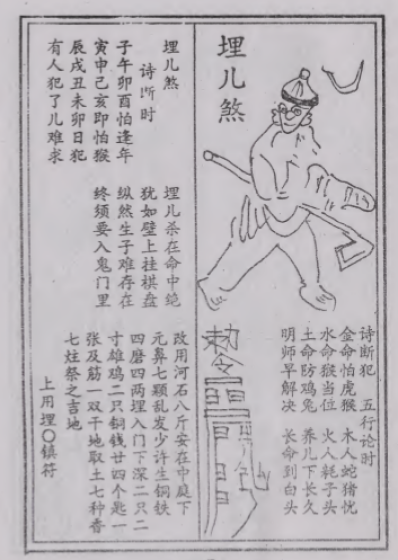 埋儿煞
诗断犯 五行论时
金命怕虎猴 木人蛇猪忧
水命猴当位 火人耗子头
土命防鸡兔 养儿下长久
明师早解决 长命到白头
敕令
埋儿煞
诗断时
子午卯酉怕逢年
寅申己亥即怕猴
辰戌丑未卯日犯
有人犯了儿难求
埋儿杀在命中绝
犹如壁上挂棋盘
纵然生子难存在
终须要入鬼门里
改用河石八斤安在中庭下
元鼻七颗乱发少许生铜铁
四磨四两埋入门下深二只二
寸雄鸡二只铜钱廿四个匙一
张及筋一双干地取土七种香
七炷祭之吉地
上用埋〇镇符